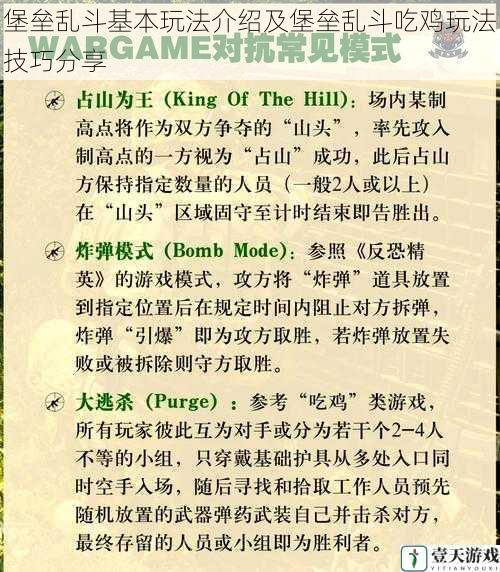 堡垒乱斗基本玩法介绍及堡垒乱斗吃鸡玩法
技巧分享
WARGAME对抗常见模式
占山为王 (King Of The Hill)：场内某制
高点将作为双方争夺的“山头”，率先攻入
制高点的一方视为“占山”成功，此后占山
方保持指定数量的人员（一般2人或以上）
在“山头”区域固守至计时结束即告胜出。
炸弹模式 (Bomb Mode)：参照《反恐精
英》的游戏模式，攻方将“炸弹”道具放置
到指定位置后在规定时间内阻止对方拆弹，
炸弹“引爆”即为攻方取胜，若炸弹放置失
败或被拆除则守方取胜。
大逃杀 (Purge) ：参考“吃鸡”类游戏，
所有玩家彼此互为对手或分为若干个2—4人
不等的小组，只穿戴基础护具从多处入口同
时空手入场，随后寻找和拾取工作人员预先
随机放置的武器弹药武装自己并击杀对方，
最终存留的人员或小组即为胜利者。
壹天游戏
YITIANYOUXI